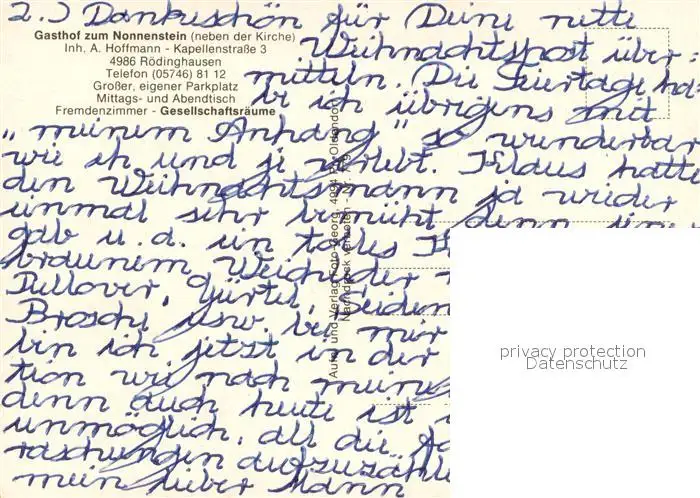 2.) Dankeschön für Deine nette
Gasthof zum Nonnenstein (neben der Kirche)
Inh. A. Hoffmann - Kapellenstraße 3
4986 Rödinghausen
Telefon (05746) 81 12
Großer, eigener Parkplatz
Mittags- und Abendtisch
Fremdenzimmer - Gesellschaftsräume
Weihnachtspost über=
mitteln. Die Feiertage ha=
be ich übrigens mit
„meinem Anhang" so wunderbar
wie eh und je verlebt. Klaus hatte
den Weihnachtsmann ja wieder
einmal sehr bemüht, denn
gab u. a. ein tolles
braunem Weichleder
Pullover, Gürtel, Seiden
Brosche usw. bei mir
bin ich jetzt in der
tion wie nach meine
denn auch heute ist
unmöglich, all die
raschungen aufzuzähle
mein lieber Mann
Aufn. und Verlag Foto Georg, 4994 Pr. Oldendorf
Nachdruck verboten - Nr.
privacy protection
Datenschutz